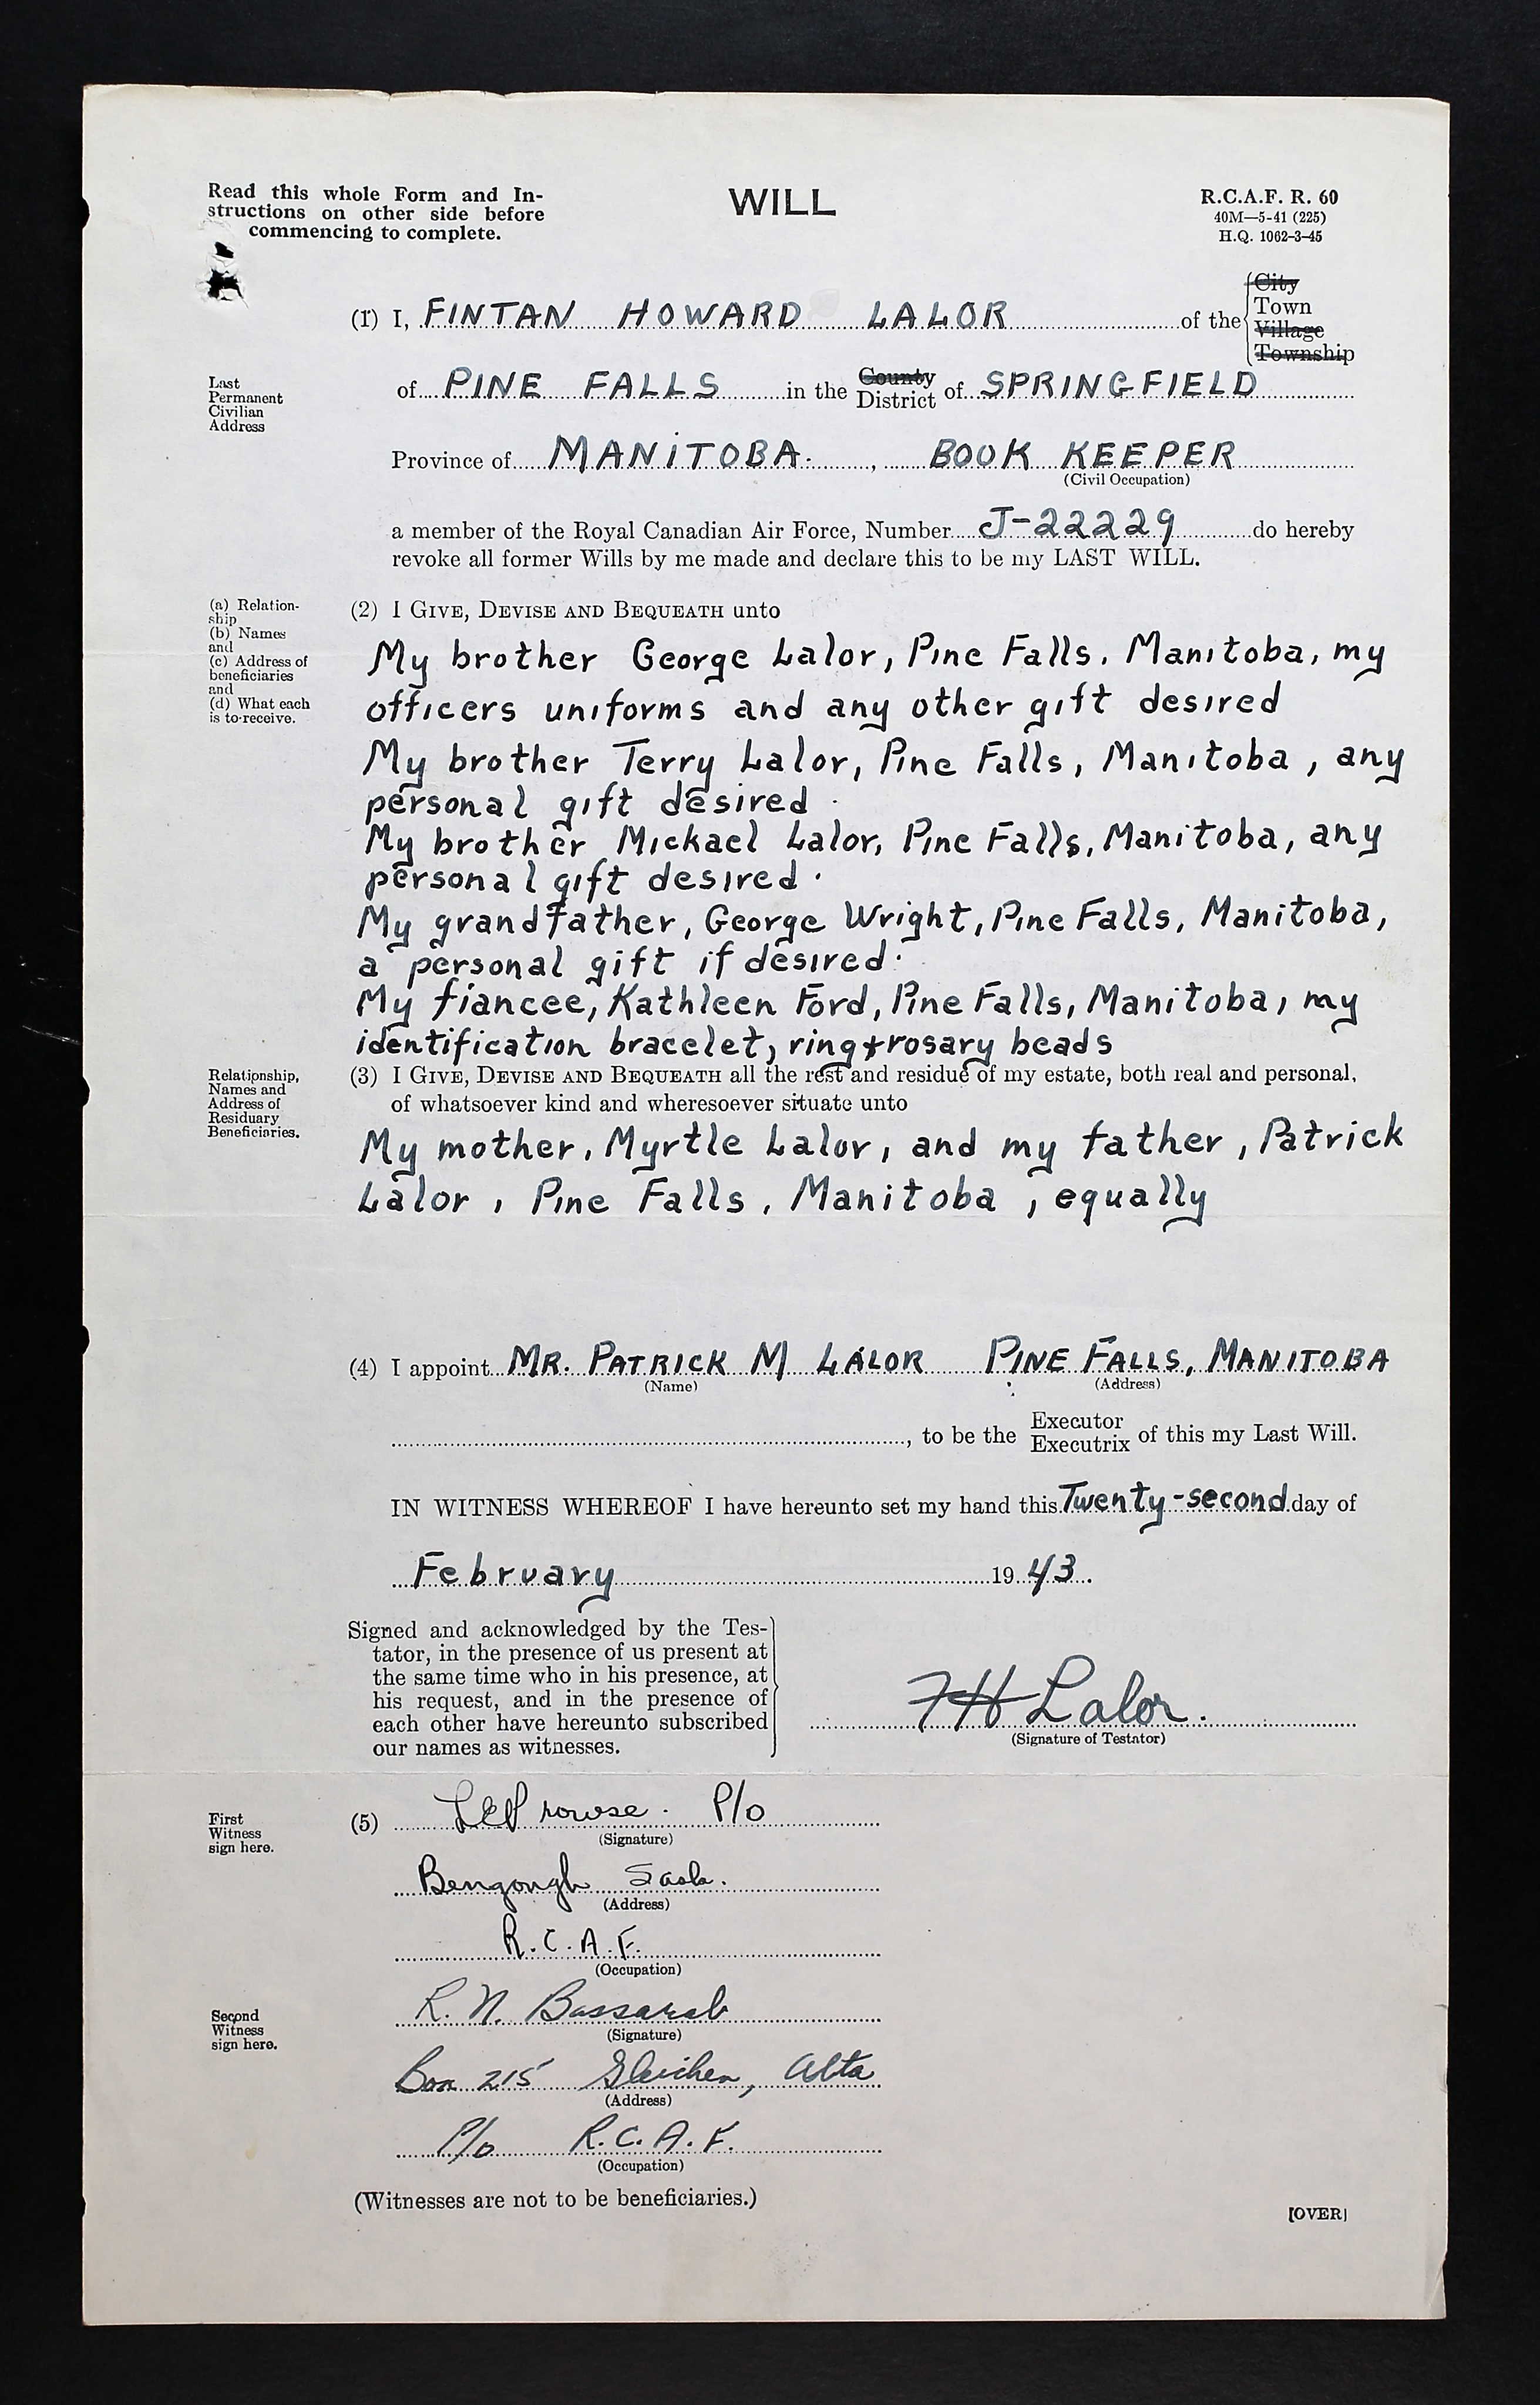 Read this whole Form and In-
structions on other side before
commencing to complete.
WILL
R.C.A.F. R. 60
40M—5-41 (225)
H.Q. 1062-3-45
(1) I, FINTAN HOWARD LALOR of the
City
Town
Village
Township
Last
Permanent
Civilian
Address
of PINE FALLS in the County District of SPRINGFIELD
Province of MANITOBA. , BOOK KEEPER
(Civil Occupation)
a member of the Royal Canadian Air Force, Number J-22229 do hereby
revoke all former Wills by me made and declare this to be my LAST WILL.
(a) Relation-
ship
(b) Names
and
(c) Address of
beneficiaries
and
(d) What each
is to receive.
(2) I GIVE, DEVISE AND BEQUEATH unto
My brother George Lalor, Pine Falls, Manitoba, my
officers uniforms and any other gift desired
My brother Terry Lalor, Pine Falls, Manitoba, any
personal gift desired.
My brother Mickael Lalor, Pine Falls, Manitoba, any
personal gift desired.
My grandfather, George Wright, Pine Falls, Manitoba,
a personal gift if desired.
My fiancee, Kathleen Ford, Pine Falls, Manitoba, my
identification bracelet, ring + rosary beads
Relationship,
Names and
Address of
Residuary
Beneficiaries.
(3) I GIVE, DEVISE AND BEQUEATH all the rest and residue of my estate, both real and personal,
of whatsoever kind and wheresoever situate unto
My mother, Myrtle Lalor, and my father, Patrick
Lalor, Pine Falls, Manitoba, equally
(4) I appoint MR. PATRICK M LALOR PINE FALLS, MANITOBA
(Name) (Address)
, to be the Executor Executrix of this my Last Will.
IN WITNESS WHEREOF I have hereunto set my hand this Twenty-second day of
February 1943.
Signed and acknowledged by the Tes-
tator, in the presence of us present at
the same time who in his presence, at
his request, and in the presence of
each other have hereunto subscribed
our names as witnesses.
FH Lalor.
(Signature of Testator)
First
Witness
sign here.
(5) Prowse. P/o
(Signature)
Bengough Sask.
(Address)
R.C.A.F.
(Occupation)
Second
Witness
sign here.
R. N. Bassarab
(Signature)
Box 215 Gleichen, Alta
(Address)
P/o R.C.A.F.
(Occupation)
(Witnesses are not to be beneficiaries.)
[OVER]